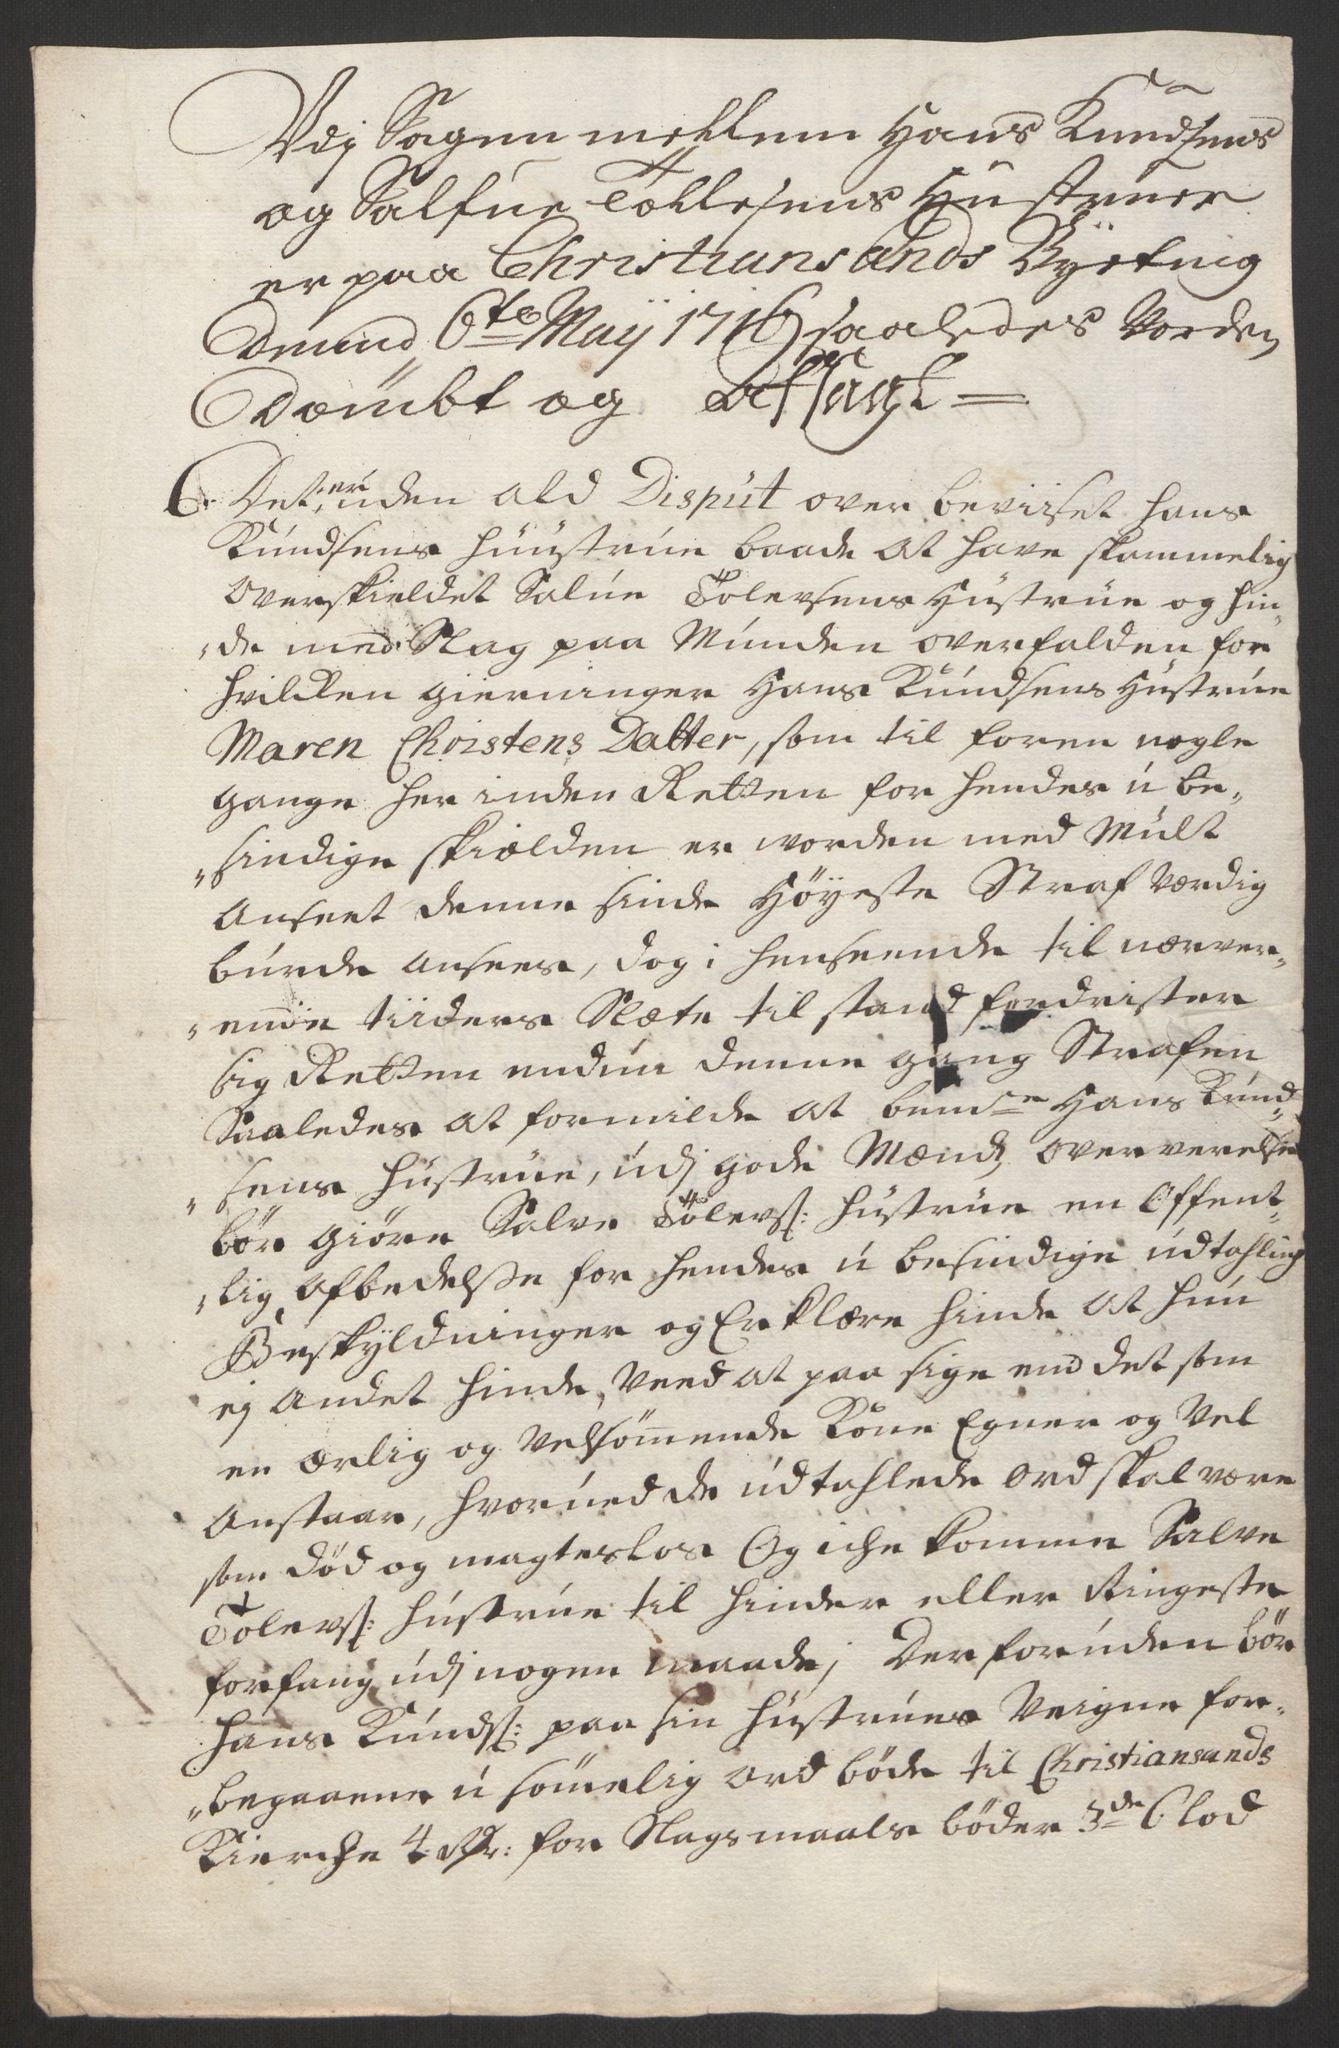 Udj Sagen mellem Hans Kundsens
og Salfue Tollefsens Hustruer
er paa Christiansands Byeting
den 6te Maij 1716 saaledes Vorden
Dømbt og Afsagt
Det er uden ald Disput over bevisset Hans
Kundsens Huustrue baade at have skammelig
Overskieldet Salue Tolevsens Hustrue og hin-
de med Slag paa Munden overfalden for
hvilcken gierninger Hans Kundsens Hustrue
Maren Christens Datter, som til foren nogle
gange her inden Retten for hendes u be-
sindige skielden er worden med Mult
Anseet denne sinde Høyeste Straf værdig
burde ansees, dog i henseende til nærver-
ende tiiders Slæte til stand fordrister
sig Retten endnu denne gang Straffen
Saaledes at formilde at bemte Hans Kund-
sens Hustrue, udj gode Mænds oververelse
bør giøre Salve Tølevs: Hustrue en Offent-
lig Afbedelsse for hendes u besindige udtahling
Beskyldninger og Erklære hinde at hun
ej andet hinde, Veed at paa sige end det som
en ærlig og Velsømmende Kone Egner og Vel
Anstaar, hvorved de udtahlede ord skal være
som død og magtesløs Og iche komme Salve
Tolevs: Hustrue til hinder eller Ringeste
forfang udj nogen maade; Der foruden bør
Hans Kunds: paa sin Hustrues Veigne for-
begaaene u sømelig ord bøde til Christiansands
Kierche 4 Rdr: for Slagsmaals bøder 3de 6 lod